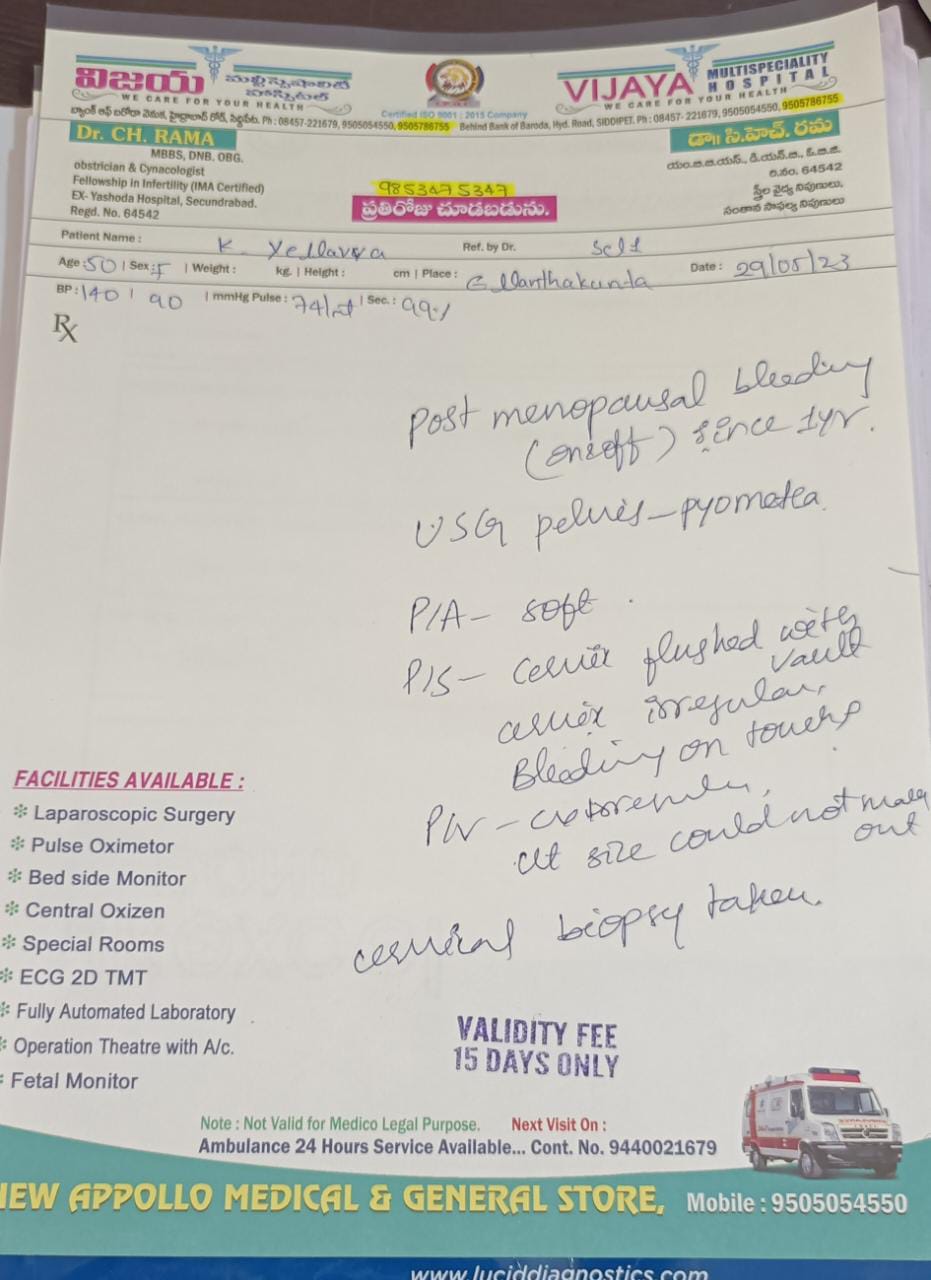 విజయ మల్టీస్పెషాలిటీ హాస్పిటల్
WE CARE FOR YOUR HEALTH
VIJAYA MULTISPECIALITY HOSPITAL
WE CARE FOR YOUR HEALTH
Certified ISO 9001 : 2015 Company
బ్యాంక్ ఆఫ్ బరోడా వెనుక, హైద్రాబాద్ రోడ్, సిద్దిపేట. Ph : 08457-221679, 9505054550, 9505786755
Behind Bank of Baroda, Hyd. Road, SIDDIPET. Ph : 08457- 221679, 9505054550, 9505786755
Dr. CH. RAMA
MBBS, DNB. OBG.
obstrician & Cynacologist
Fellowship in Infertility (IMA Certified)
EX- Yashoda Hospital, Secundrabad.
Regd. No. 64542
9853475347
ప్రతిరోజు చూడబడును.
డా॥ సి.హెచ్. రమ
ఎం.బి.బి.యస్., డి.యన్.బి., ఓ.బి.జి.
రి.నం. 64542
స్త్రీల వైద్య నిపుణులు,
సంతాన సాఫల్య నిపుణులు
Patient Name : K. Yellavva Ref. by Dr. Self
Age : 50 | Sex : F | Weight : kg. | Height : cm | Place : Date : 29/05/23
BP : 140 | 90 | mmHg Pulse : 74/ | Sec. : 99%
Rx
Post menopausal bleeding
(on & off) since 1yr.
USG pelvis - pyometra
P/A - soft.
P/S - cervix flushed with vault
cervix irregular,
Bleeding on touch
P/V -
ut size could not make out
cervical biopsy taken.
FACILITIES AVAILABLE :
Laparoscopic Surgery
Pulse Oximetor
Bed side Monitor
Central Oxizen
Special Rooms
ECG 2D TMT
Fully Automated Laboratory
Operation Theatre with A/c.
Fetal Monitor
VALIDITY FEE
15 DAYS ONLY
Note : Not Valid for Medico Legal Purpose. Next Visit On :
Ambulance 24 Hours Service Available... Cont. No. 9440021679
NEW APPOLLO MEDICAL & GENERAL STORE, Mobile : 9505054550
www.luciddiagnostics.com